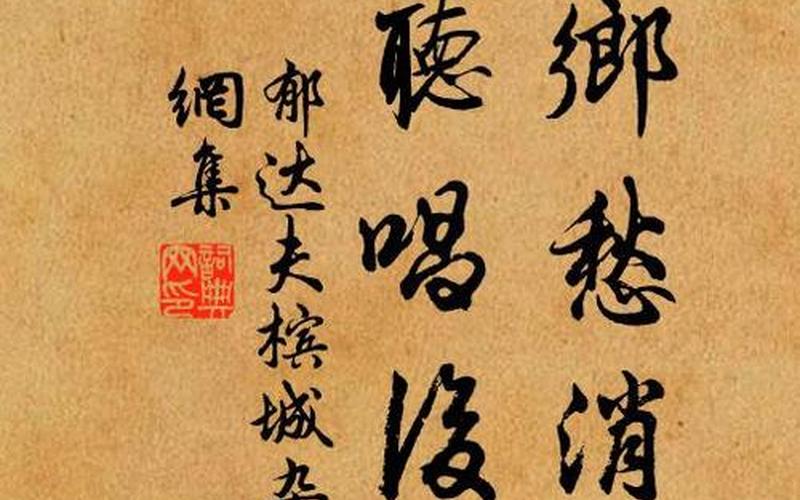 鄉愁消
聽唱後
郁达夫槟城杂
網集
詞典网印